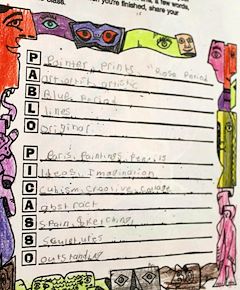 you're finished, share your
P Painter, Prints "Rose Period
A artistic
B Blue Period
L lines
O original
P Paris, Paintings, Pencils
I Ideas, Imagination
C Cubism, Creative, Collage
A abstract
S Spain, Sketching,
S Sculptures
O outstanding